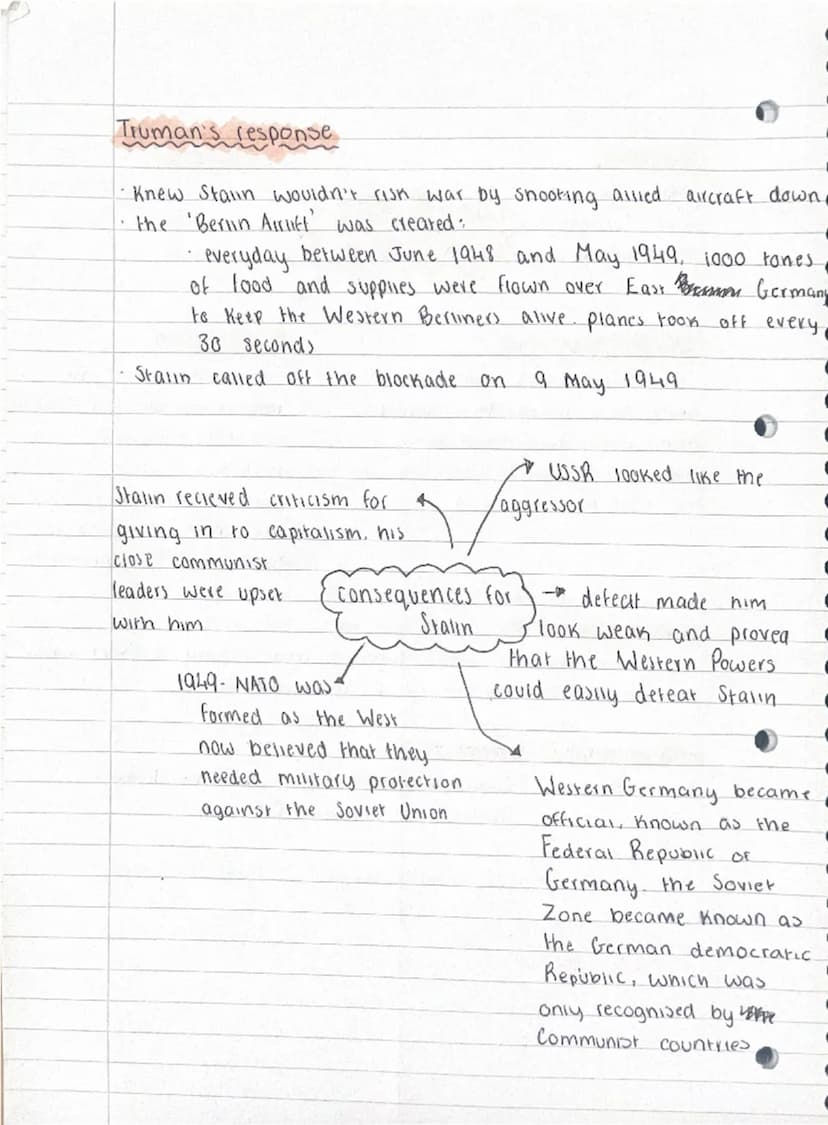 Truman's response
· Knew Stalin wouldn't risk war by shooting allied aircraft down
· the 'Berlin Airlift' was created:
· everyday between June 1948 and May 1949, 1000 tones
of food and supplies were flown over East Germany
to keep the Western Berliners alive. planes took off every
30 seconds
· Stalin called off the blockade on 9 May 1949
USSR looked like the
aggressor
Stalin recieved criticism for
giving in to capitalism. his
close communist
leaders were upset
with him
consequences for
Stalin
defeat made him
look weak and proved
that the Western Powers
could easily defeat Stalin
1949- NATO was
formed as the West
now believed that they
needed military protection
against the Soviet Union
Western Germany became
official, known as the
Federal Republic of
Germany. the Soviet
Zone became known as
the German democratic
Republic, which was
only recognised by
Communist countries